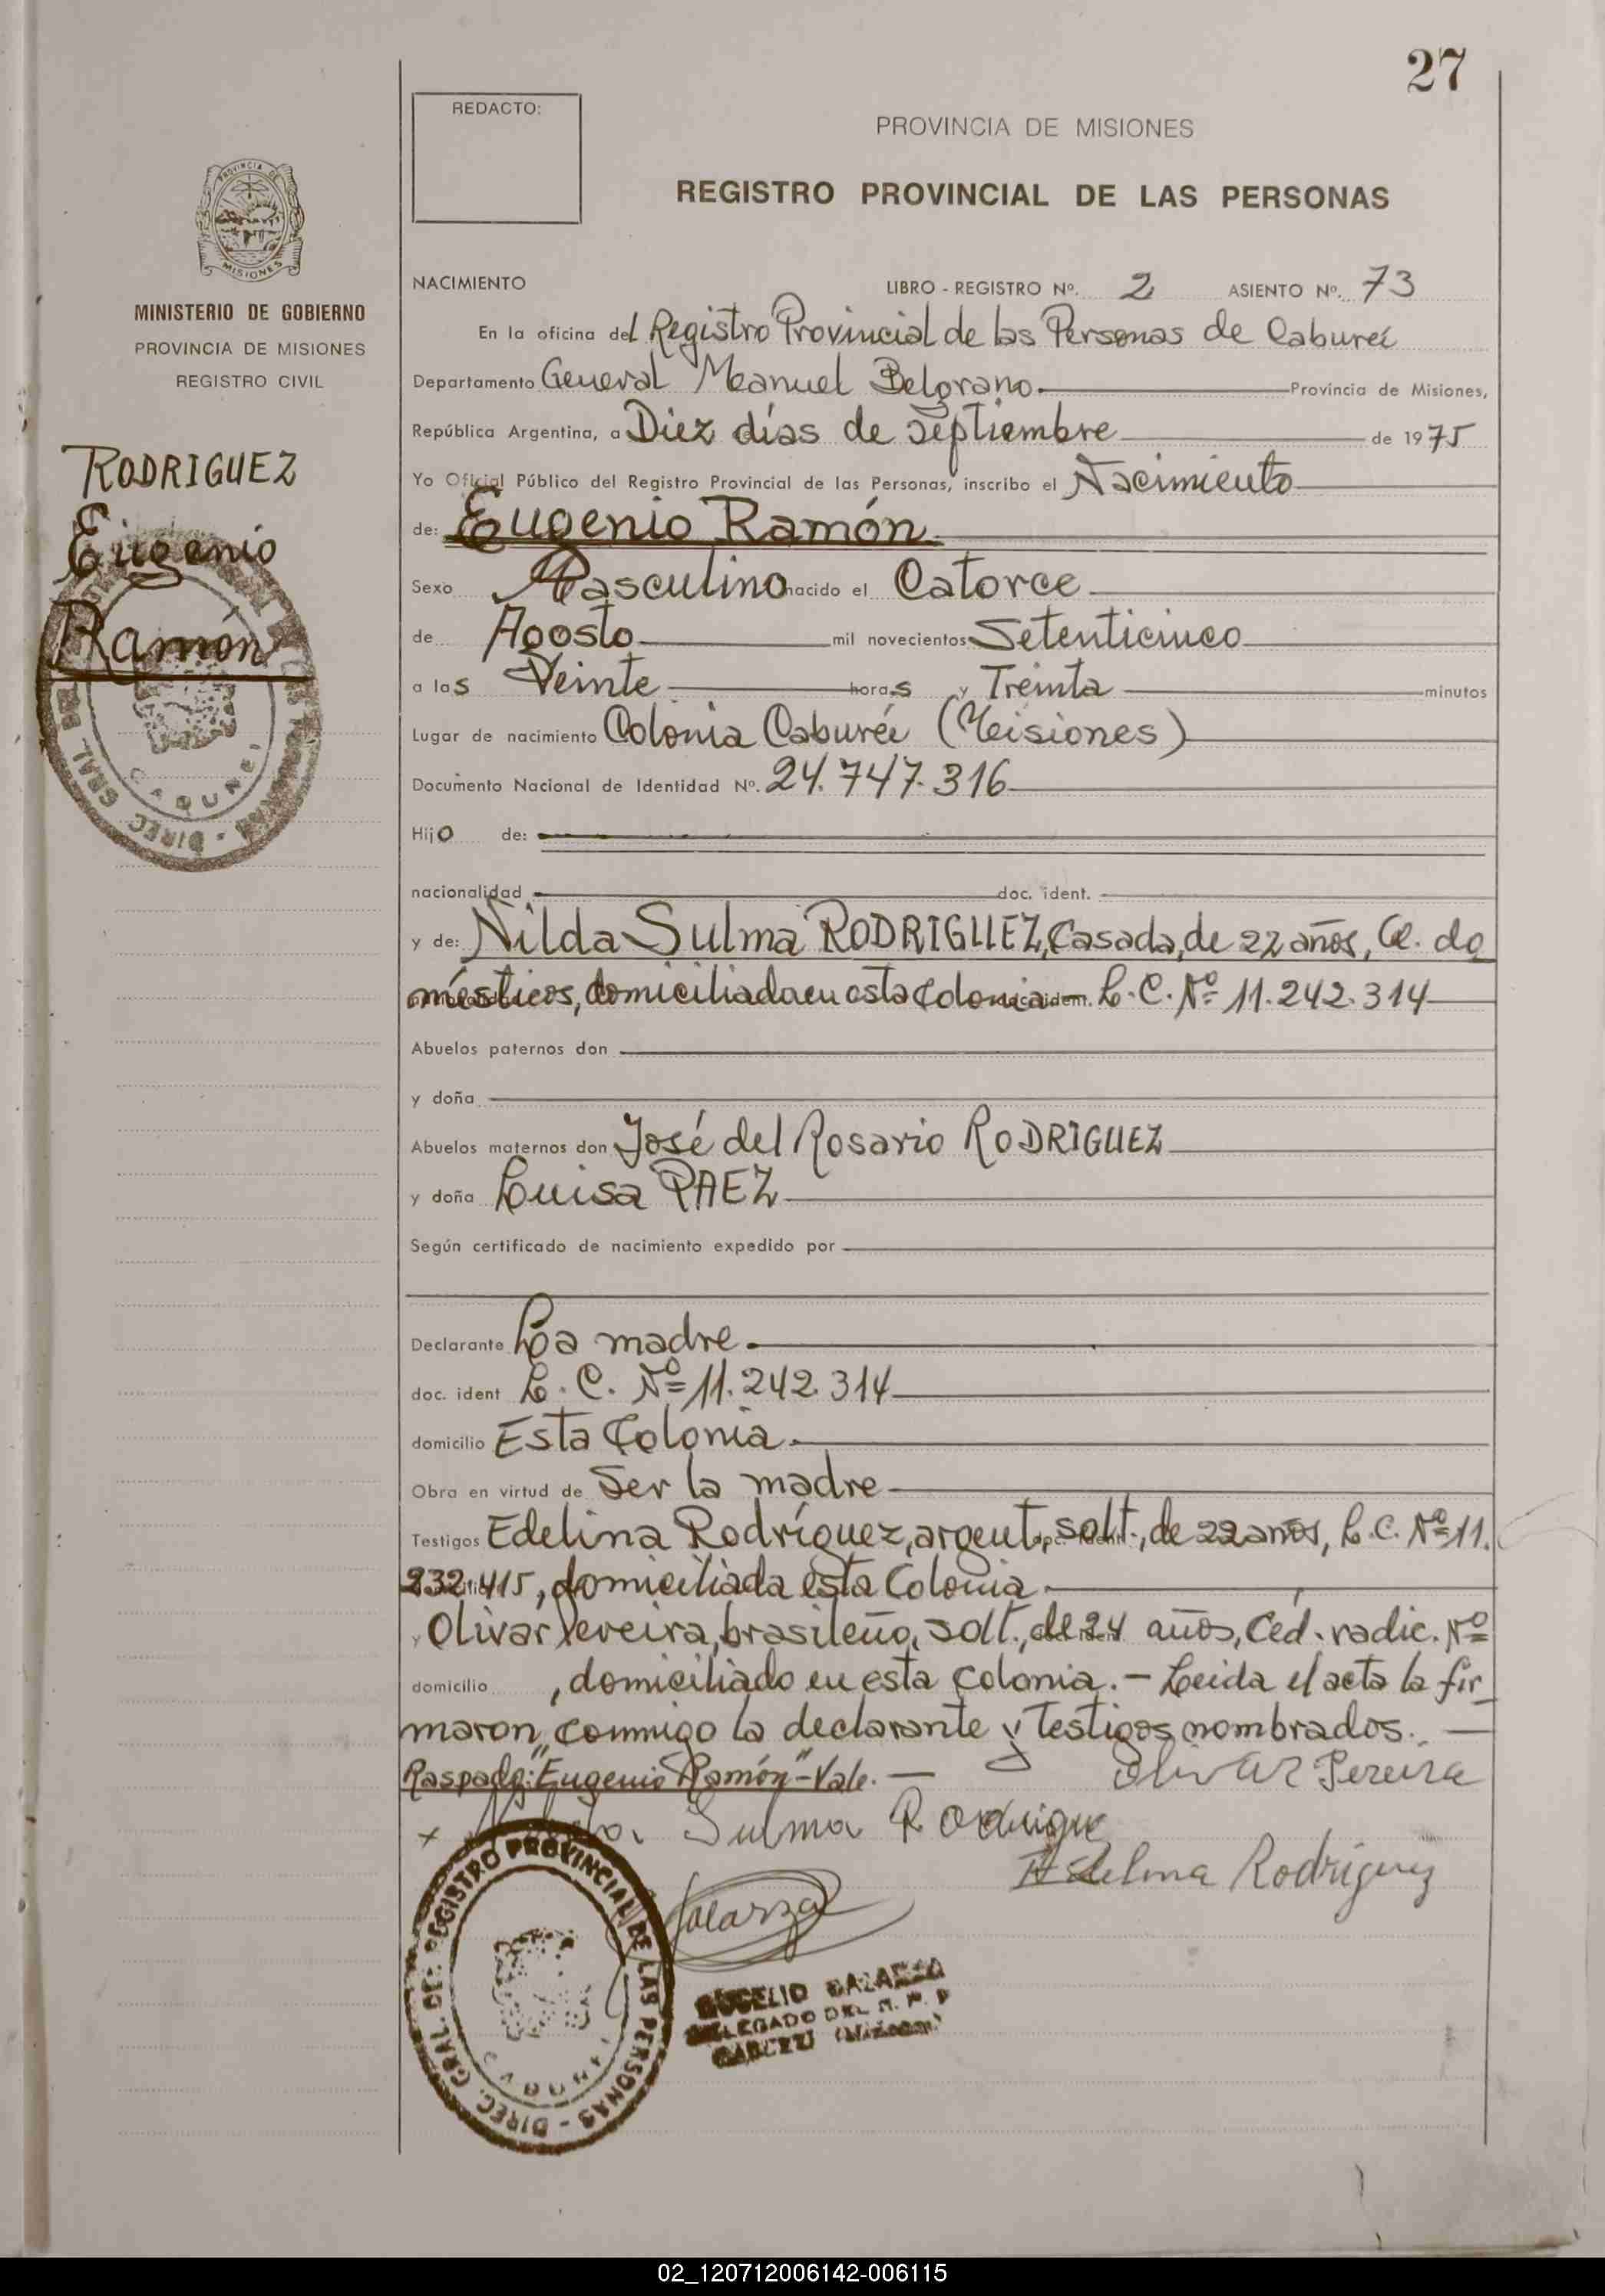 27
REDACTO:
PROVINCIA DE MISIONES
REGISTRO PROVINCIAL DE LAS PERSONAS
PROVINCIA DE
MISIONES
MINISTERIO DE GOBIERNO
PROVINCIA DE MISIONES
REGISTRO CIVIL
RODRIGUEZ
Eugenio
Ramón
NACIMIENTO LIBRO - REGISTRO Nº. 2 ASIENTO Nº. 73
En la oficina del Registro Provincial de las Personas de Cabureí
Departamento General Manuel Belgrano. Provincia de Misiones,
República Argentina, a Diez días de Septiembre de 1975
Yo Oficial Público del Registro Provincial de las Personas, inscribo el Nacimiento
de: Eugenio Ramón.
Sexo Masculino nacido el Catorce
de Agosto mil novecientos Setenticinco
a las Veinte horas y Treinta minutos
Lugar de nacimiento Colonia Cabureí (Misiones)
Documento Nacional de Identidad Nº. 24.747.316
Hijo de:
nacionalidad doc. ident.
y de: Nilda Sulma RODRIGUEZ, Casada, de 22 años, Q. do
mésticos, domiciliada en esta Colonia L.C. Nº 11.242.314
Abuelos paternos don
y doña
Abuelos maternos don José del Rosario RODRIGUEZ
y doña Luisa PAEZ
Según certificado de nacimiento expedido por
Declarante La madre.
doc. ident L.C. Nº 11.242.314
domicilio Esta Colonia.
Obra en virtud de Ser la madre
Testigos Edelina Rodríguez, argent., solt., de 22 años, L.C. Nº 11.
232.415, domiciliada esta Colonia.
y Olivar Pereira, brasileño, solt., de 24 años, Ced. radic. Nº
domicilio , domiciliado en esta Colonia. - Leida el acta la fir
maron conmigo la declarante y testigos nombrados. -
Raspado: "Eugenio Ramón" - Vale. -
Olivar Pereira
x Sulma Rodrigue
Rodriguez
Galarza
REGISTRO PROVINCIAL DE LAS PERSONAS - DIREC. GRAL DEL
ROGELIO GALARZA
DELEGADO DEL R. P. P
(Misiones)
02_120712006142-006115